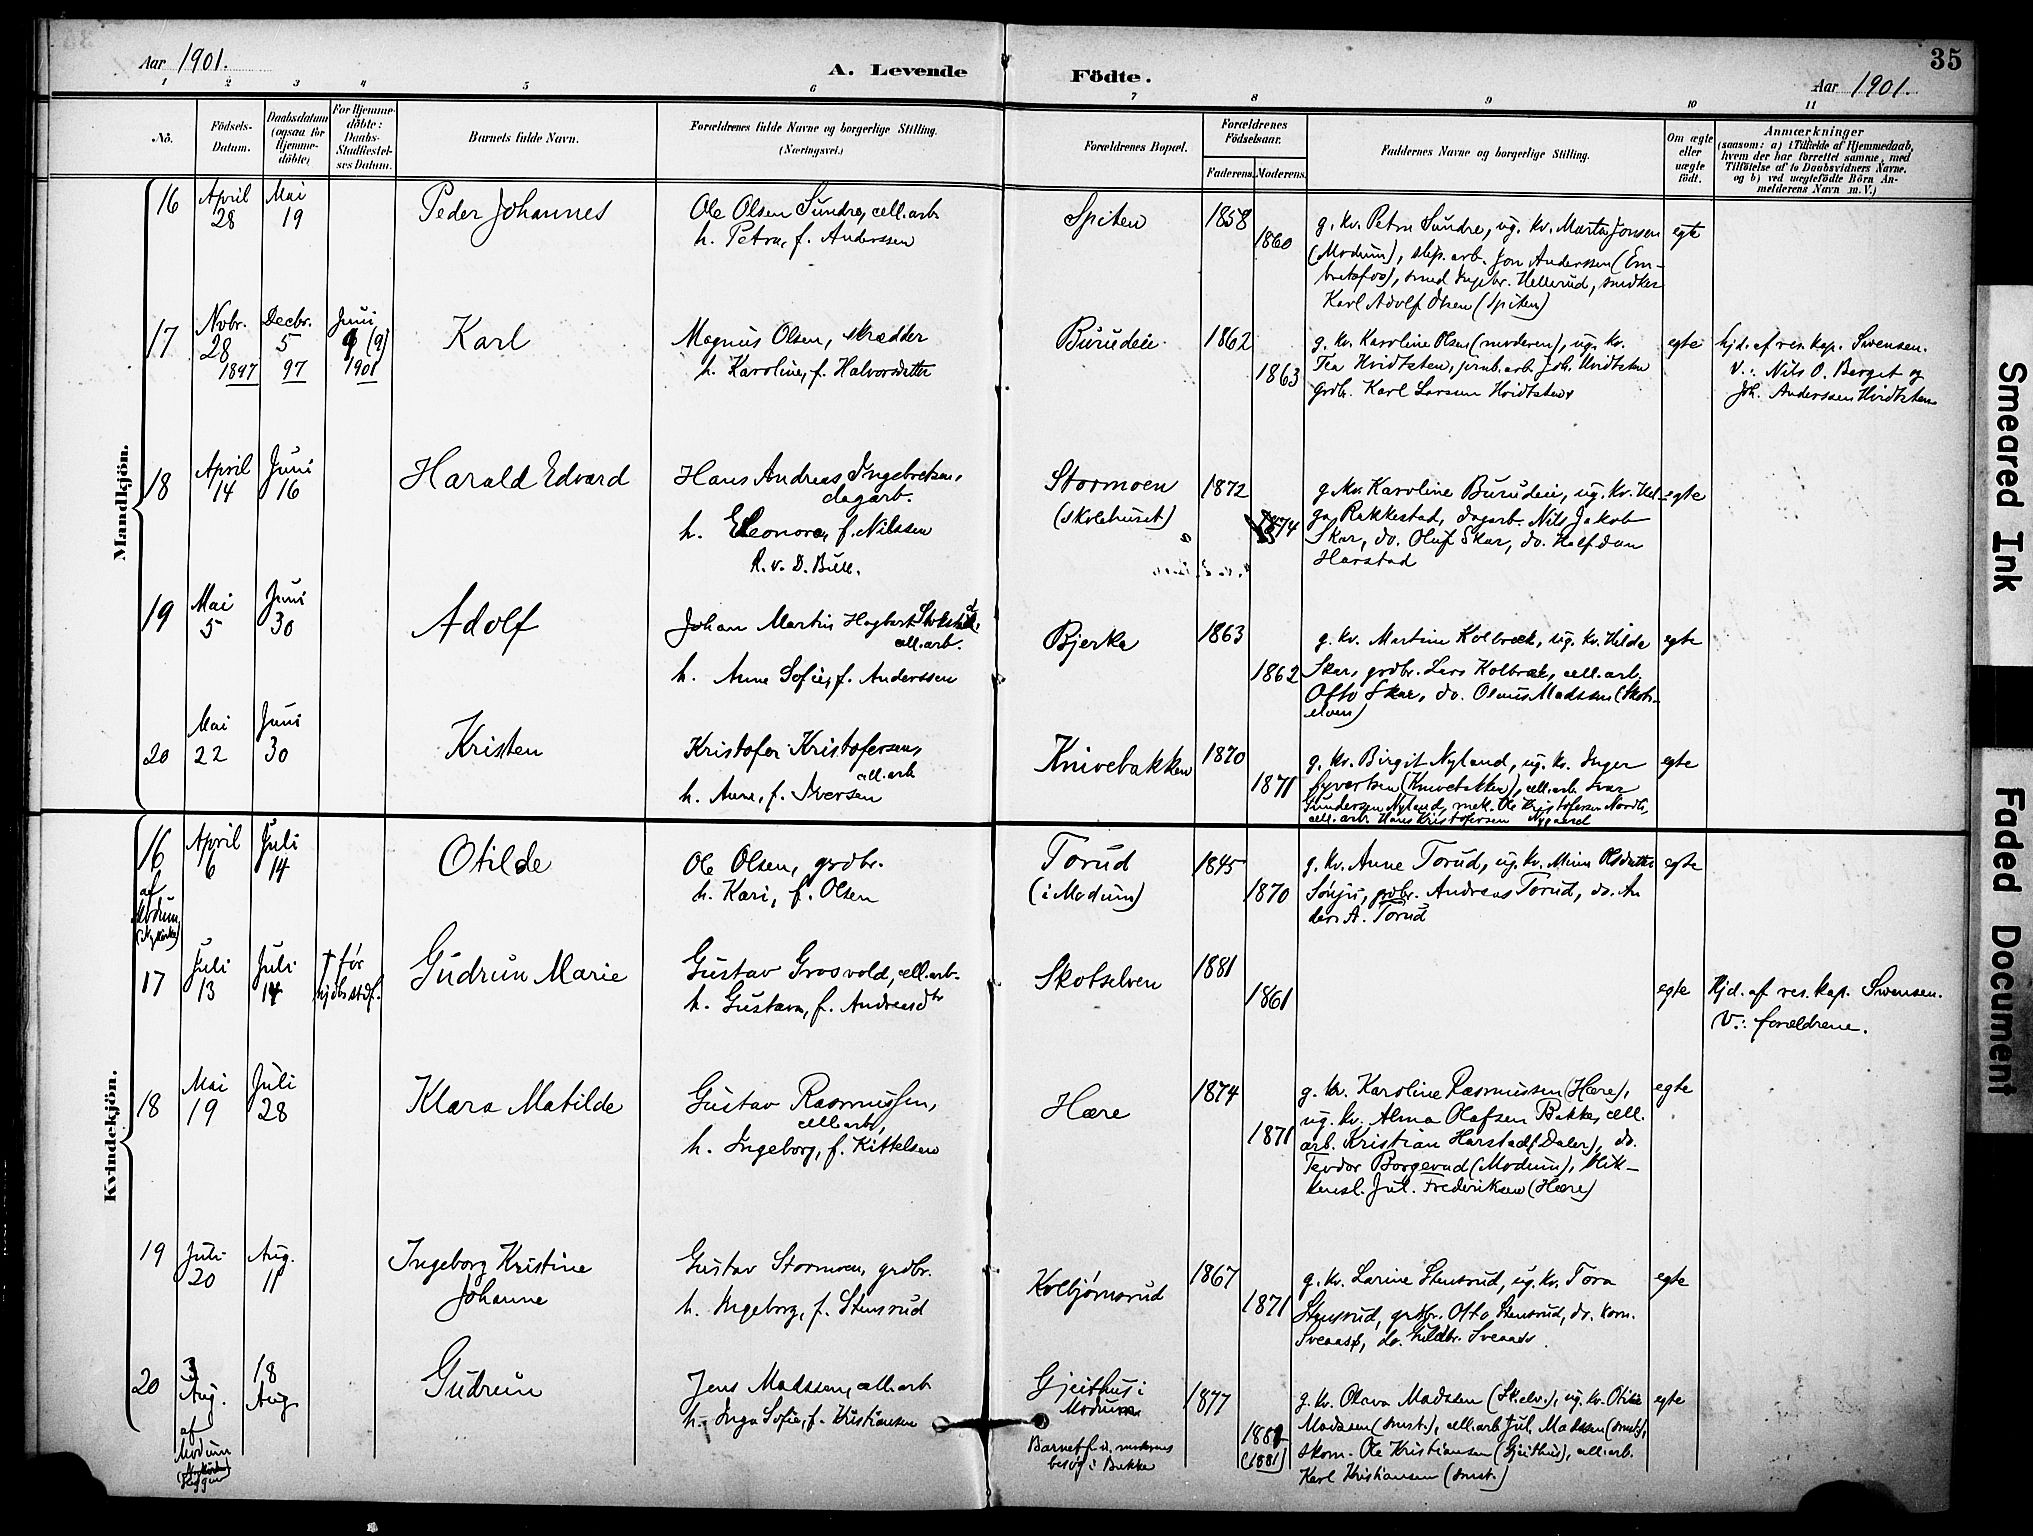 35
Aar 1901.
A. Levende Födte.
Aar 1901.
1 2 3 4 5 6 7 8 9 10 11
No.
Födsels-Datum.
Daabsdatum (ogsaa for Hjemme-döbte)
For Hjemme-döbte: Daabs-Stadfæstel-ses Datum.
Barnets fulde Navn.
Forældrenes fulde Navne og borgerlige Stilling.
(Næringsvei.)
Forældrenes Bopæl.
Forældrenes Födselsaar.
Faderens. Moderens.
Faddernes Navne og borgerlige Stilling.
Om ægte eller uægte födt.
Anmærkninger
(saasom: a) i Tilfælde af Hjemmedaab,
hvem der har forrettet samme, med
Tilföielse af to Daabsvidners Navne.
og b) ved uægtefödte Börn An-
melderens Navn m. V.)
Mandkjön.
16 April 28 Mai 19 Peder Johannes
Ole Olsen Sundre, cell.arb.
h. Petra, f. Anderssen
Spiten 1858 1860
g. kv. Petra Sundre, ug. kv. Marta Jonsen
(Modum), slip. arb. Jon Anderssen (Em-
bretsfos), smed Ingebr. Hellerud, snidker
Karl Adolf Olsen (Spiten)
egte
17 Novbr. 28 1897 Decbr. 5 97 Juni 9 (9) 1901 Karl
Magnus Olsen, skrædder
h. Karoline, f. Halvorsdatter
Burudeie 1862 1863
g. kv. Karoline Olsen (moderen), ug. kv.
Tea Hvidtsten, jernb.arb. Joh. Hvidtsten
grdb. Karl Larsen Hvidtsten
egte
hjd. af res. kap. Swensen.
V.: Nils O. Berget og
Joh. Anderssen Hvidtsten
18 April 14 Juni 16 Harald Edvard
Hans Andreas Ingebretsen,
dagarb.
h. Eleonora, f. Nilssen
R. v. D. Bull.
Stormoen
(skolehuset)
1872 1874
g. kv. Karoline Burudeie, ug. kv. Hel-
ga Rakkestad, dagarb. Nils Jakob
Skar, do. Oluf Skar, do. Halfdan
Harstad
egte
19 Mai 5 Juni 30 Adolf
Johan Martin Hagbart
cell.arb.
h. Anne Sofie, f. Anderssen
Bjerke 1863 1862
g. kv. Martine Kolbræk, ug. kv. Hilda
Skar, grdbr. Lars Kolbræk, cell. arb.
Otto Skar, do. Olaus Madssen (Skots-
elven)
egte
20 Mai 22 Juni 30 Kristen
Kristofer Kristofersen,
cell.arb
h. Anne, f. Iversen
Knivebakken 1870 1871
g. kv. Birgit Nyland, ug. kv. Inger
Syvertsen (Knivebakken), cell.arb. Ivar
Gundersen Nyland, mek. Ole Kristofersen Nordli,
cell. arb. Hans Kristofersen Nygaard
egte
Kvindekjön.
16 af Modum (Nykirke) April 6 Juli 14 Otilde
Ole Olsen, grdbr.
h. Kari, f. Olsen
Torud
(i Modum)
1845 1870
g. kv. Anne Torud, ug. kv. Mina Olsdatter
grdbr. Andreas Torud, do. An
ders A. Torud
egte
17 Juli 13 Juli 14 † før hjdb. stdf. Gudrun Marie
Gustav Grosvold, cell.arb.
h. Gustava, f. Andreasdtr
Skotselven 1881 1861
egte
Hjd. af res. kap. Swensen.
V.: forældrene.
18 Mai 19 Juli 28 Klara Matilde
Gustav Rasmussen,
cell.arb,
h. Ingeborg, f. Kittelsen
Hære 1874 1871
g. kv. Karoline Rasmussen (Hære),
ug. kv. Alma Olafsen Bakke, cell.
arb. Kristian Harstad (Daler), do.
Teodor Borgerud (Modum), blik-
kensl. Jul. Frederiksen (Hære)
egte
19 Juli 20 Aug. 11 Ingeborg Kristine
Johanne
Gustav Stormoen, grdbr.
h. Ingeborg, f. Stensrud
Kolbjørnsrud 1867 1871
g. kv. Larine Stensrud, ug. kv. Tora
Stensrud, grdbr. Otto Stensrud, do. Korn.
Sveaas, do. Guldbr. Sveaas.
egte
20 3 Aug. af Modum 18 Aug Gudrun
Jens Madssen, cell.arb
h. Inga Sofie, f. Kristiansen
Gjeithus i
Modum
Barnet f. u. moderens
besøg i Bakke
1877 1881 (1881)
g. kv. Olava Madsen (Sk.elv.), ug. kv. Otilie
Madsen (smst.), cell.arb Jul. Madssen (smst.),
skom. Ole Kristiansen (Gjeithus), cell.arb.
Karl Kristiansen (smst.)
egte
Smeared Ink
Faded Document